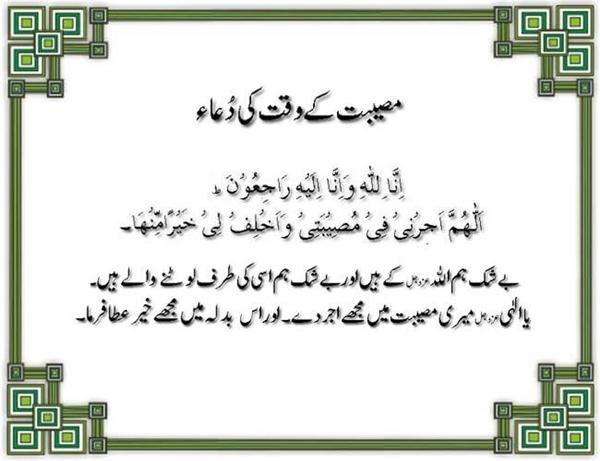 مصیبت کے وقت کی دُعاء
اِنَّا لِلّٰهِ وَاِنَّا اِلَيْهِ رَاجِعُوْنَ ط
اَللّٰهُمَّ اَجِرْنِىْ فِىْ مُصِيْبَتِىْ وَاَخْلِفْ لِىْ خَيْرًا مِّنْهَا۔
بے شک ہم اللہ عزوجل کے ہیں اور بے شک ہم اسی کی طرف لوٹنے والے ہیں۔
یاالٰہی عزوجل میری مصیبت میں مجھے اجر دے۔ اور اس بدلہ میں مجھے خیر عطا فرما۔